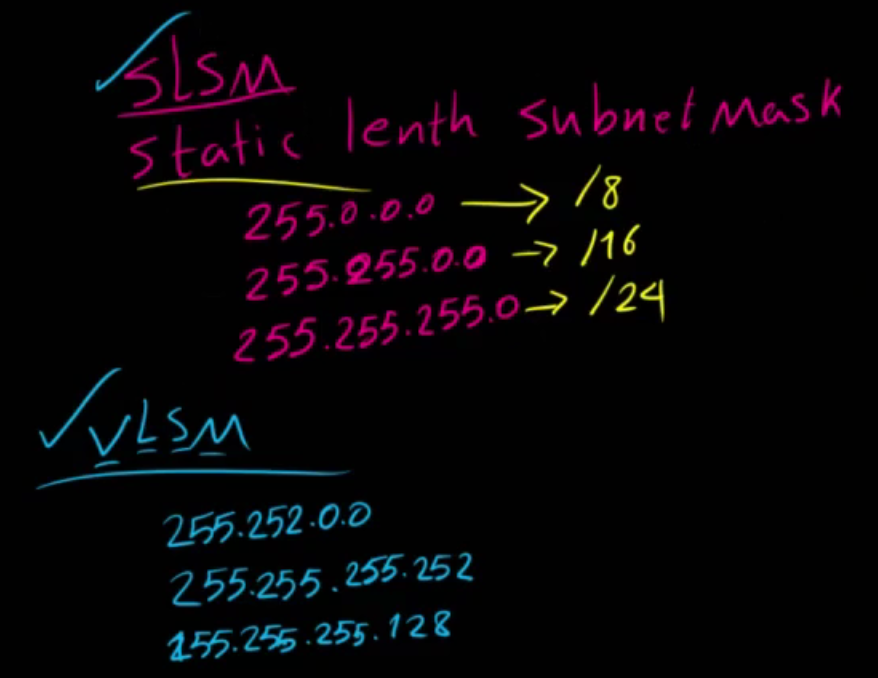 SLSM
static lenth subnet Mask
255.0.0.0 → /8
255.255.0.0 → /16
255.255.255.0 → /24
VLSM
255.252.0.0
255.255.255.252
255.255.255.128